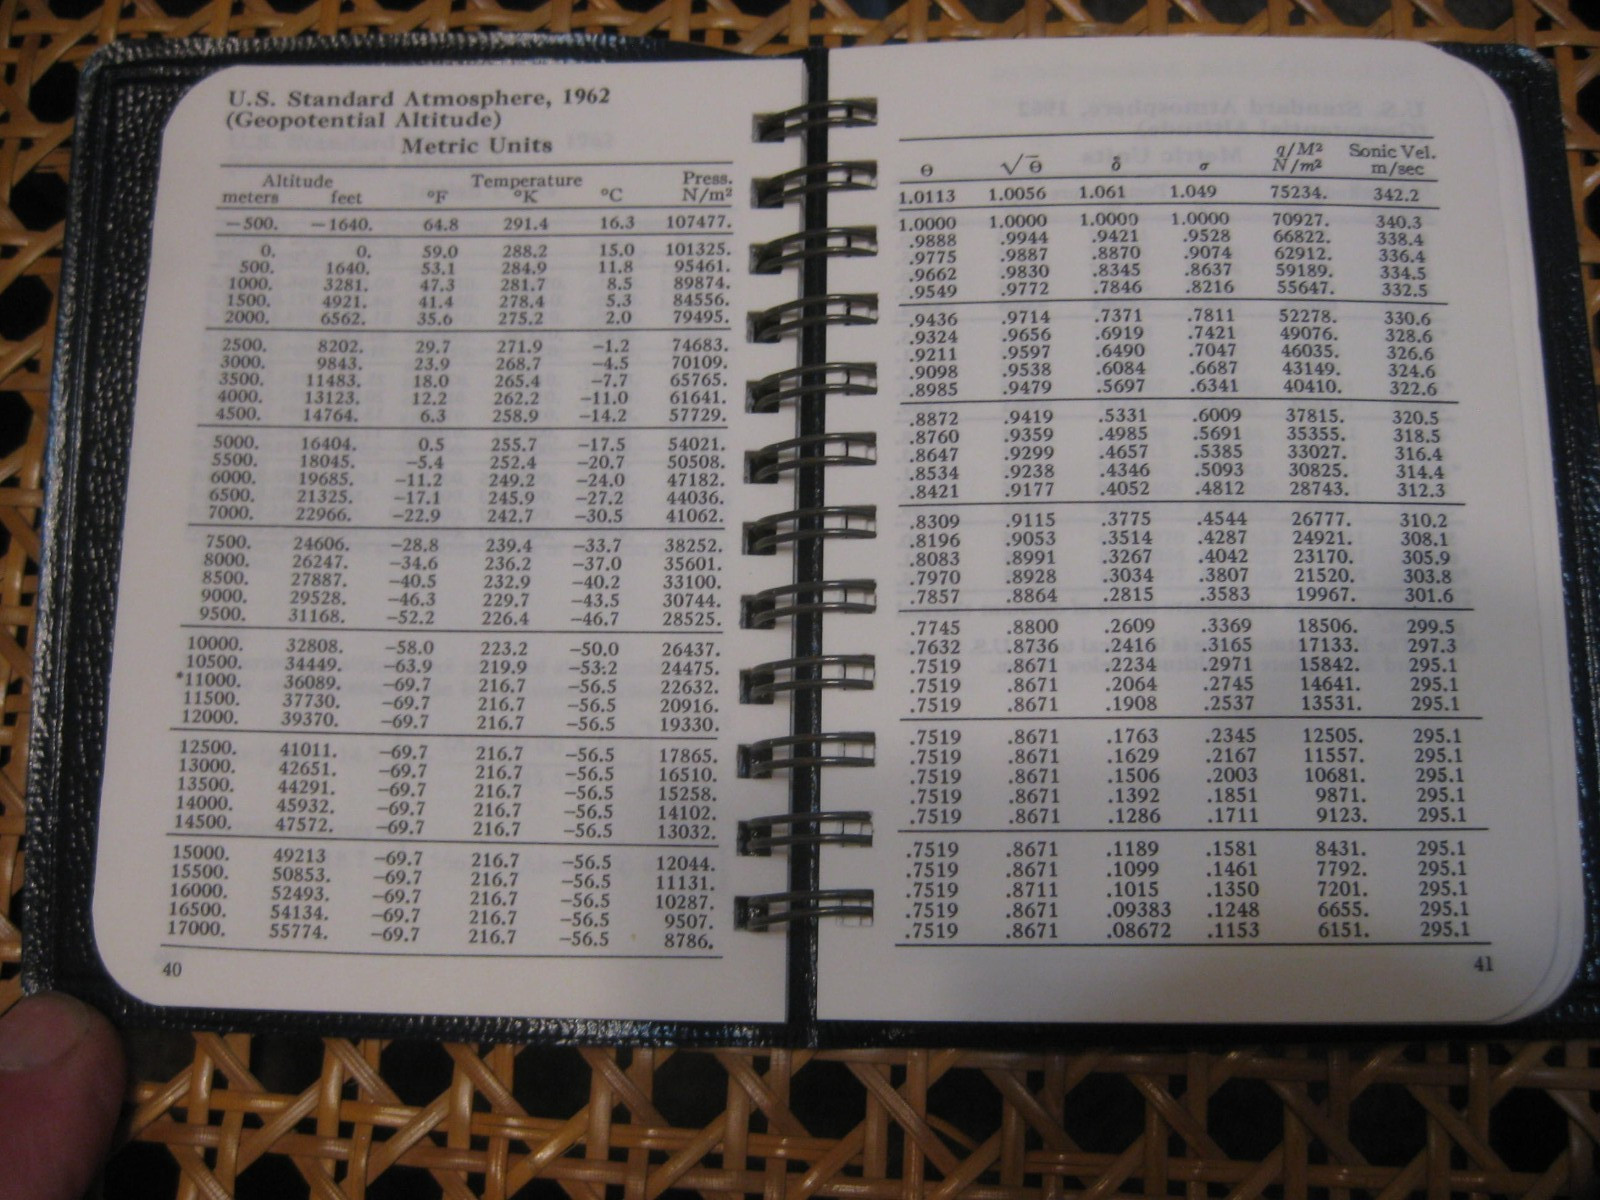 U.S. Standard Atmosphere, 1962
(Geopotential Altitude)
Metric Units
Altitude Temperature Press.
meters feet °F °K °C N/m²
−500. −1640. 64.8 291.4 16.3 107477.
0. 0. 59.0 288.2 15.0 101325.
500. 1640. 53.1 284.9 11.8 95461.
1000. 3281. 47.3 281.7 8.5 89874.
1500. 4921. 41.4 278.4 5.3 84556.
2000. 6562. 35.6 275.2 2.0 79495.
2500. 8202. 29.7 271.9 −1.2 74683.
3000. 9843. 23.9 268.7 −4.5 70109.
3500. 11483. 18.0 265.4 −7.7 65765.
4000. 13123. 12.2 262.2 −11.0 61641.
4500. 14764. 6.3 258.9 −14.2 57729.
5000. 16404. 0.5 255.7 −17.5 54021.
5500. 18045. −5.4 252.4 −20.7 50508.
6000. 19685. −11.2 249.2 −24.0 47182.
6500. 21325. −17.1 245.9 −27.2 44036.
7000. 22966. −22.9 242.7 −30.5 41062.
7500. 24606. −28.8 239.4 −33.7 38252.
8000. 26247. −34.6 236.2 −37.0 35601.
8500. 27887. −40.5 232.9 −40.2 33100.
9000. 29528. −46.3 229.7 −43.5 30744.
9500. 31168. −52.2 226.4 −46.7 28525.
10000. 32808. −58.0 223.2 −50.0 26437.
10500. 34449. −63.9 219.9 −53.2 24475.
*11000. 36089. −69.7 216.7 −56.5 22632.
11500. 37730. −69.7 216.7 −56.5 20916.
12000. 39370. −69.7 216.7 −56.5 19330.
12500. 41011. −69.7 216.7 −56.5 17865.
13000. 42651. −69.7 216.7 −56.5 16510.
13500. 44291. −69.7 216.7 −56.5 15258.
14000. 45932. −69.7 216.7 −56.5 14102.
14500. 47572. −69.7 216.7 −56.5 13032.
15000. 49213 −69.7 216.7 −56.5 12044.
15500. 50853. −69.7 216.7 −56.5 11131.
16000. 52493. −69.7 216.7 −56.5 10287.
16500. 54134. −69.7 216.7 −56.5 9507.
17000. 55774. −69.7 216.7 −56.5 8786.
40
θ √θ δ σ q/M² N/m² Sonic Vel. m/sec
1.0113 1.0056 1.061 1.049 75234. 342.2
1.0000 1.0000 1.0000 1.0000 70927. 340.3
.9888 .9944 .9421 .9528 66822. 338.4
.9775 .9887 .8870 .9074 62912. 336.4
.9662 .9830 .8345 .8637 59189. 334.5
.9549 .9772 .7846 .8216 55647. 332.5
.9436 .9714 .7371 .7811 52278. 330.6
.9324 .9656 .6919 .7421 49076. 328.6
.9211 .9597 .6490 .7047 46035. 326.6
.9098 .9538 .6084 .6687 43149. 324.6
.8985 .9479 .5697 .6341 40410. 322.6
.8872 .9419 .5331 .6009 37815. 320.5
.8760 .9359 .4985 .5691 35355. 318.5
.8647 .9299 .4657 .5385 33027. 316.4
.8534 .9238 .4346 .5093 30825. 314.4
.8421 .9177 .4052 .4812 28743. 312.3
.8309 .9115 .3775 .4544 26777. 310.2
.8196 .9053 .3514 .4287 24921. 308.1
.8083 .8991 .3267 .4042 23170. 305.9
.7970 .8928 .3034 .3807 21520. 303.8
.7857 .8864 .2815 .3583 19967. 301.6
.7745 .8800 .2609 .3369 18506. 299.5
.7632 .8736 .2416 .3165 17133. 297.3
.7519 .8671 .2234 .2971 15842. 295.1
.7519 .8671 .2064 .2745 14641. 295.1
.7519 .8671 .1908 .2537 13531. 295.1
.7519 .8671 .1763 .2345 12505. 295.1
.7519 .8671 .1629 .2167 11557. 295.1
.7519 .8671 .1506 .2003 10681. 295.1
.7519 .8671 .1392 .1851 9871. 295.1
.7519 .8671 .1286 .1711 9123. 295.1
.7519 .8671 .1189 .1581 8431. 295.1
.7519 .8671 .1099 .1461 7792. 295.1
.7519 .8711 .1015 .1350 7201. 295.1
.7519 .8671 .09383 .1248 6655. 295.1
.7519 .8671 .08672 .1153 6151. 295.1
41